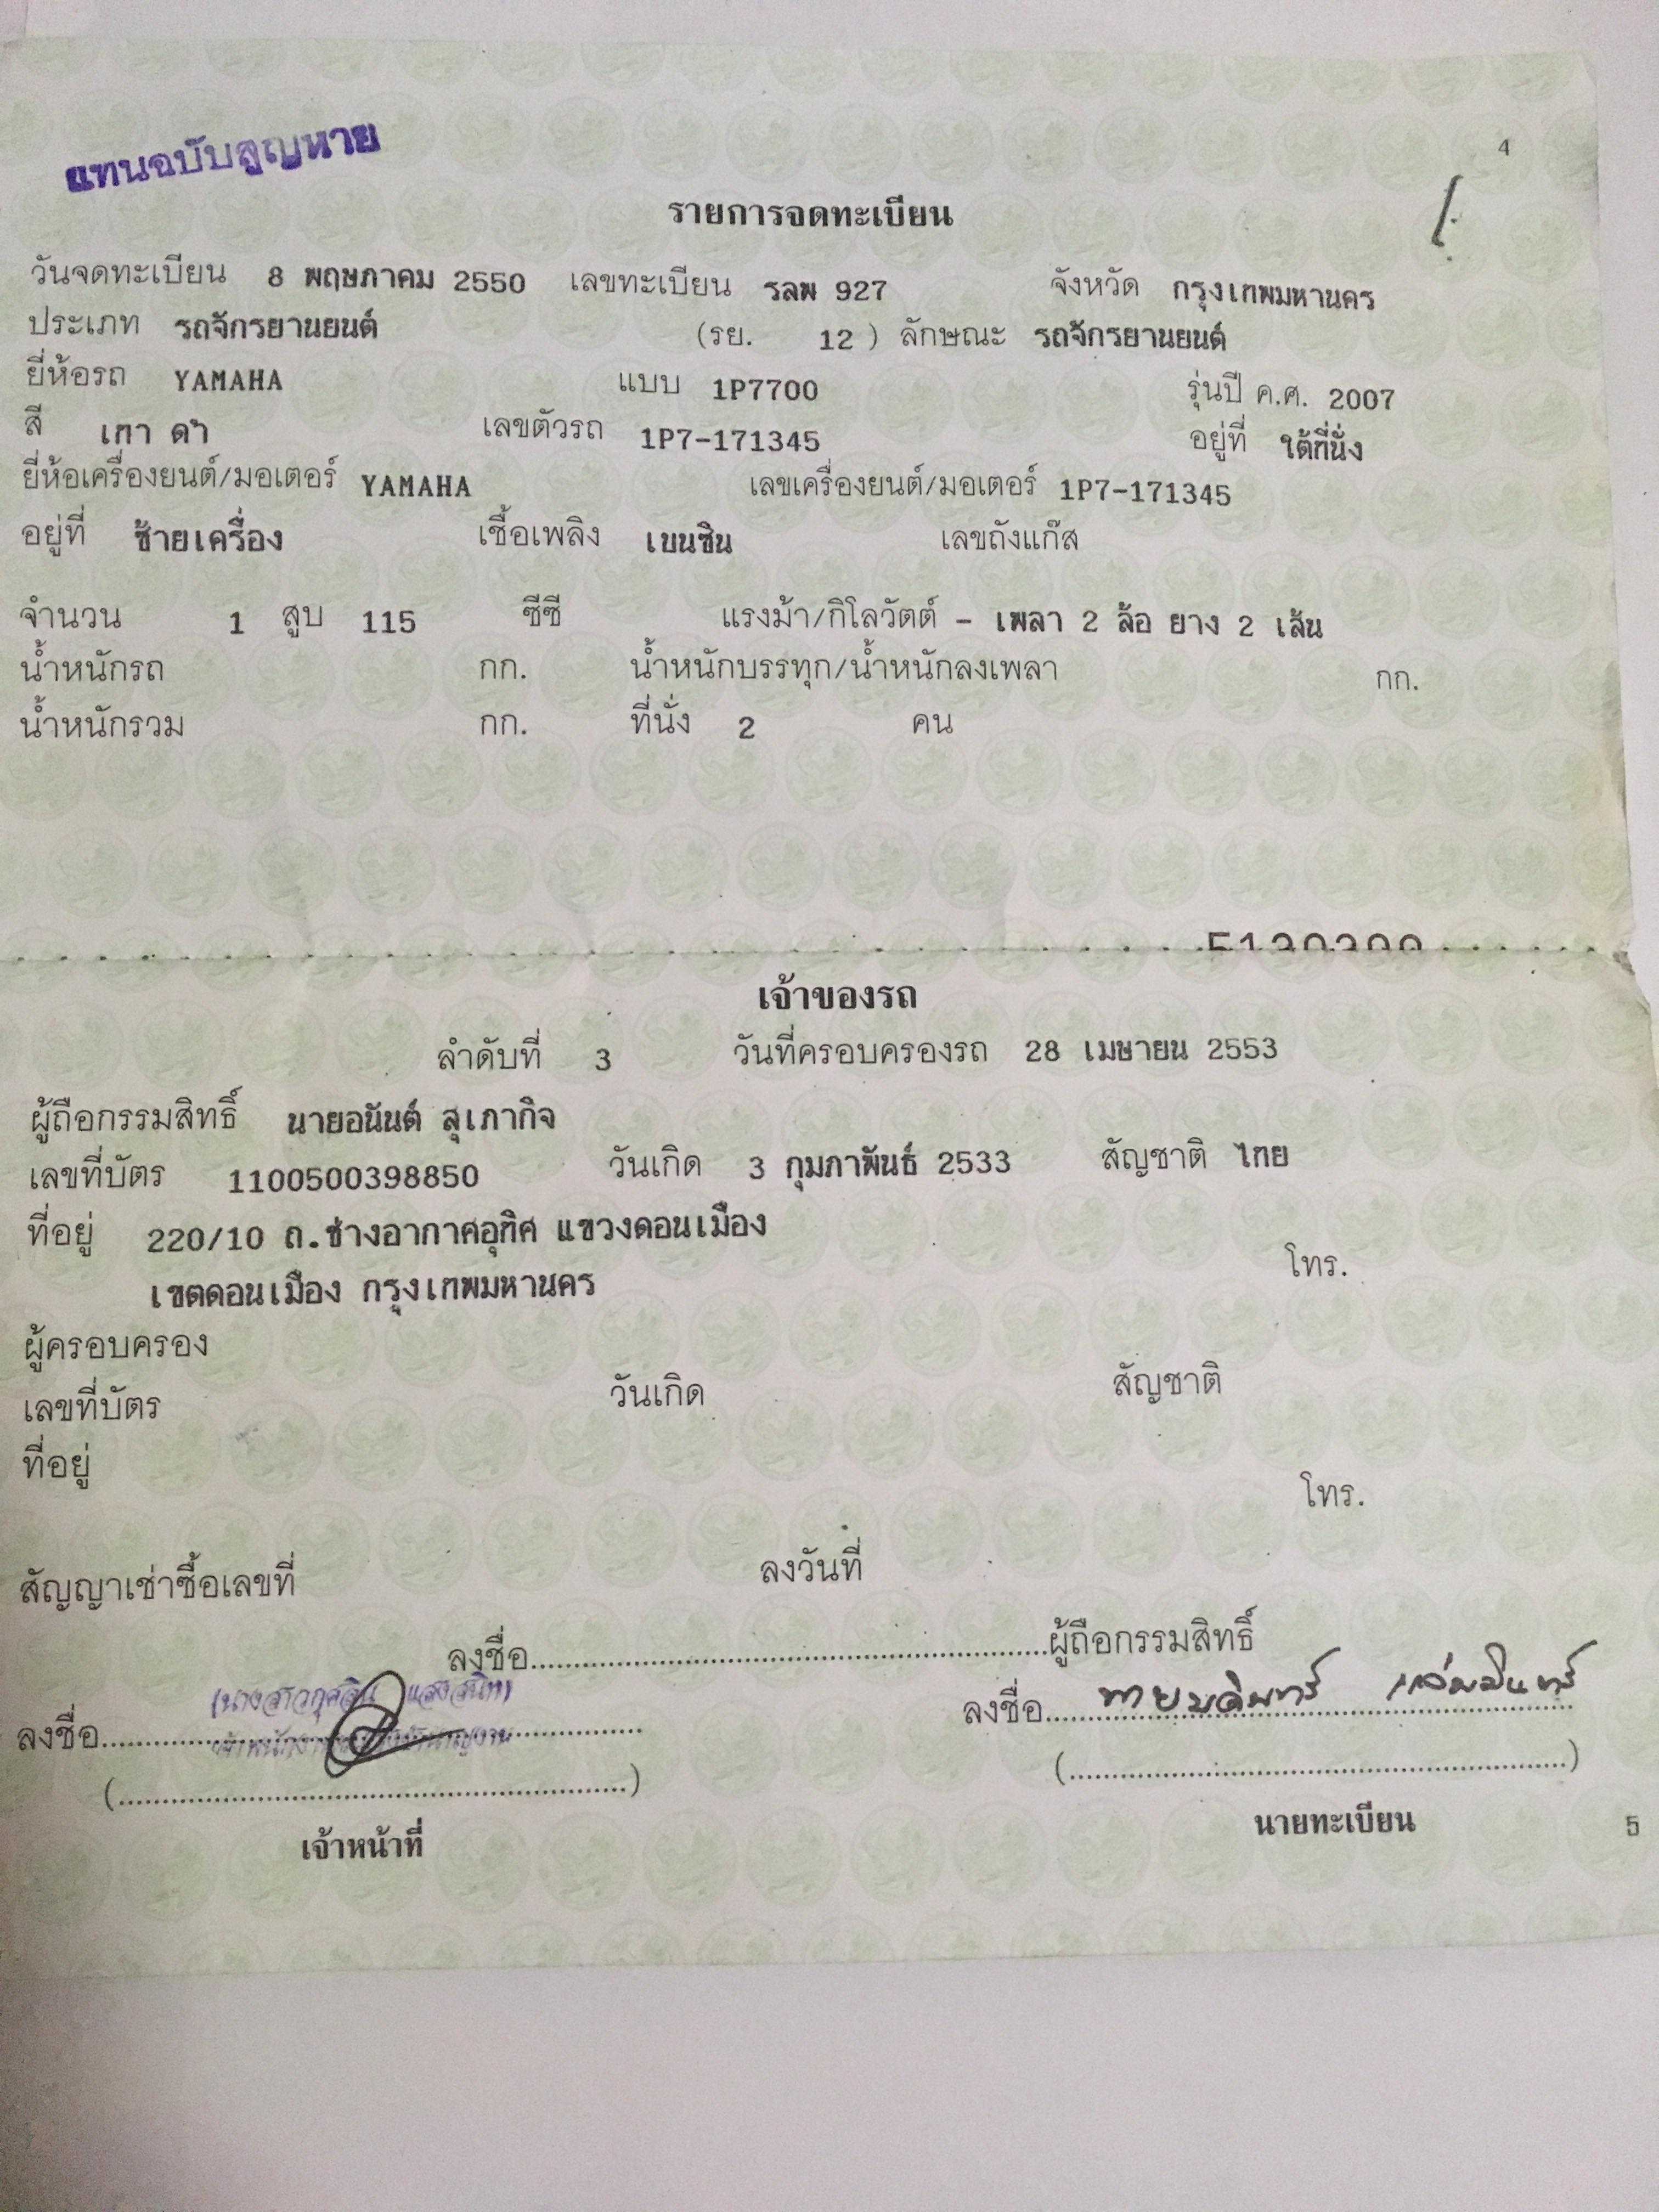 แทนฉบับสูญหาย
4
รายการจดทะเบียน
วันจดทะเบียน 8 พฤษภาคม 2550 เลขทะเบียน รลพ 927 จังหวัด กรุงเทพมหานคร
ประเภท รถจักรยานยนต์ (รย. 12 ) ลักษณะ รถจักรยานยนต์
ยี่ห้อรถ YAMAHA แบบ 1P7700 รุ่นปี ค.ศ. 2007
สี เทา ดำ เลขตัวรถ 1P7-171345 อยู่ที่ ใต้ที่นั่ง
ยี่ห้อเครื่องยนต์/มอเตอร์ YAMAHA เลขเครื่องยนต์/มอเตอร์ 1P7-171345
อยู่ที่ ซ้ายเครื่อง เชื้อเพลิง เบนซิน เลขถังแก๊ส
จำนวน 1 สูบ 115 ซีซี แรงม้า/กิโลวัตต์ - เพลา 2 ล้อ ยาง 2 เส้น
น้ำหนักรถ กก. น้ำหนักบรรทุก/น้ำหนักลงเพลา กก.
น้ำหนักรวม กก. ที่นั่ง 2 คน
เจ้าของรถ
ลำดับที่ 3 วันที่ครอบครองรถ 28 เมษายน 2553
ผู้ถือกรรมสิทธิ์ นายอนันต์ สุเภากิจ
เลขที่บัตร 1100500398850 วันเกิด 3 กุมภาพันธ์ 2533 สัญชาติ ไทย
ที่อยู่ 220/10 ถ.ช่างอากาศอุทิศ แขวงดอนเมือง
เขตดอนเมือง กรุงเทพมหานคร โทร.
ผู้ครอบครอง
เลขที่บัตร วันเกิด สัญชาติ
ที่อยู่
โทร.
สัญญาเช่าซื้อเลขที่ ลงวันที่
ลงชื่อ..........ผู้ถือกรรมสิทธิ์
ลงชื่อ.......... ลงชื่อ..........
(..........) (..........)
เจ้าหน้าที่ นายทะเบียน
5